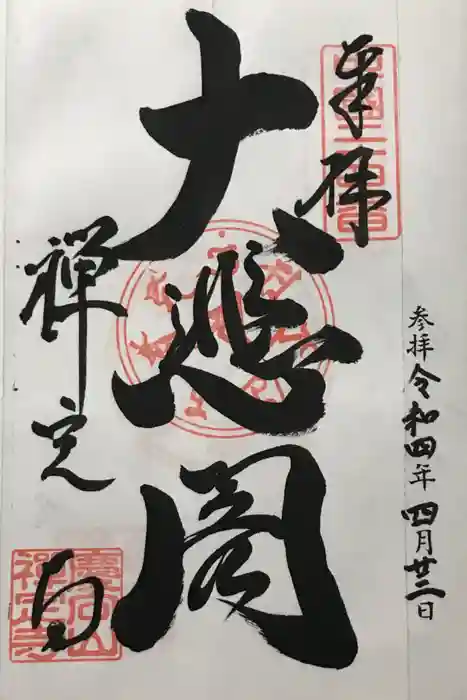 参拝 令和四年 四月廿二日
奉拝
大悲閣
禅定寺